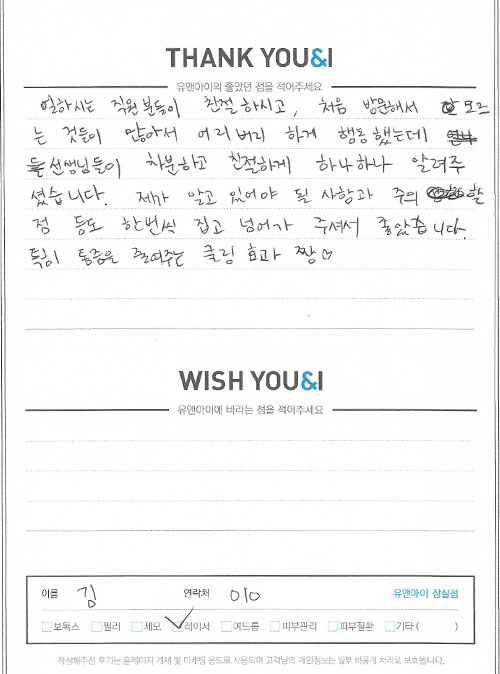 THANK YOU&I
유앤아이의 좋았던 점을 적어주세요
일하시는 직원분들이 친절하시고, 처음 방문해서 잘 모르
는 것들이 많아서 어리버리 하게 행동했는데
선생님들이 차분하고 친절하게 하나하나 알려주
셨습니다. 제가 알고 있어야 될 사항과 주의 할
점 등도 한번씩 집고 넘어가 주셔서 좋았습니다.
특히 통증을 줄여주는 쿨링 효과 짱♡
WISH YOU&I
유앤아이에 바라는 점을 적어주세요
이름 김 연락처 010 유앤아이 잠실점
보톡스 필러 제모 레이저 여드름 피부관리 피부질환 기타 ( )
작성해주신 후기는 홈페이지 게재 및 마케팅 용도로 사용되며 고객님의 개인정보는 일부 비공개 처리로 보호됩니다.